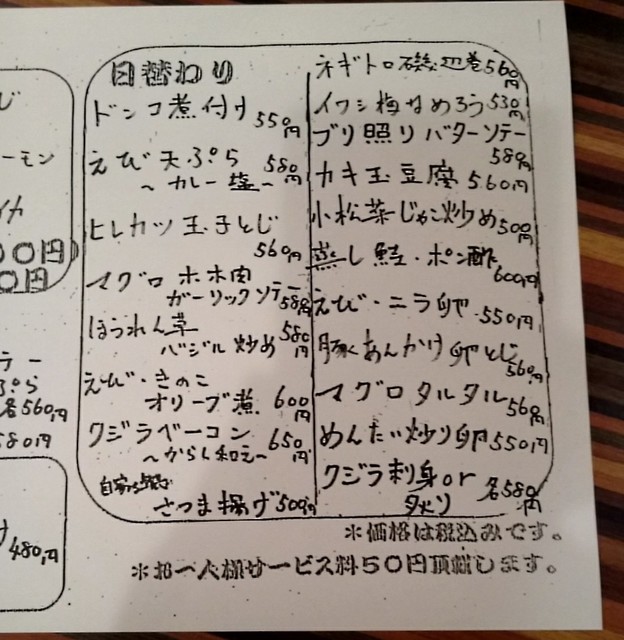 じ
ーモン
イカ
00円)
0円
ラー
ぷら
各560円
580円
け480円
日替わり
ドンコ煮付け
550円
えび天ぷら 580円
～カレー塩～
ヒレカツ玉子とじ
560円
マグロホホ肉
ガーリックソテー
580円
ほうれん草 580円
バジル炒め
えび・きのこ
オリーブ煮 600円
クジラベーコン 650円
～からし和え～
自家製
さつま揚げ500円
ネギトロ磯辺巻560円
イワシ梅なめろう530円
ブリ照りバターソテー
580円
カキ玉豆腐 560円
小松菜じゃこ炒め500円
蒸し鮭・ポン酢
600円
えび・ニラ卵 550円
豚あんかけ卵とじ
560円
マグロタルタル560円
めんたい炒り卵550円
クジラ刺身or 各580円
タタキ
※価格は税込みです。
※お一人様サービス料50円頂戴します。